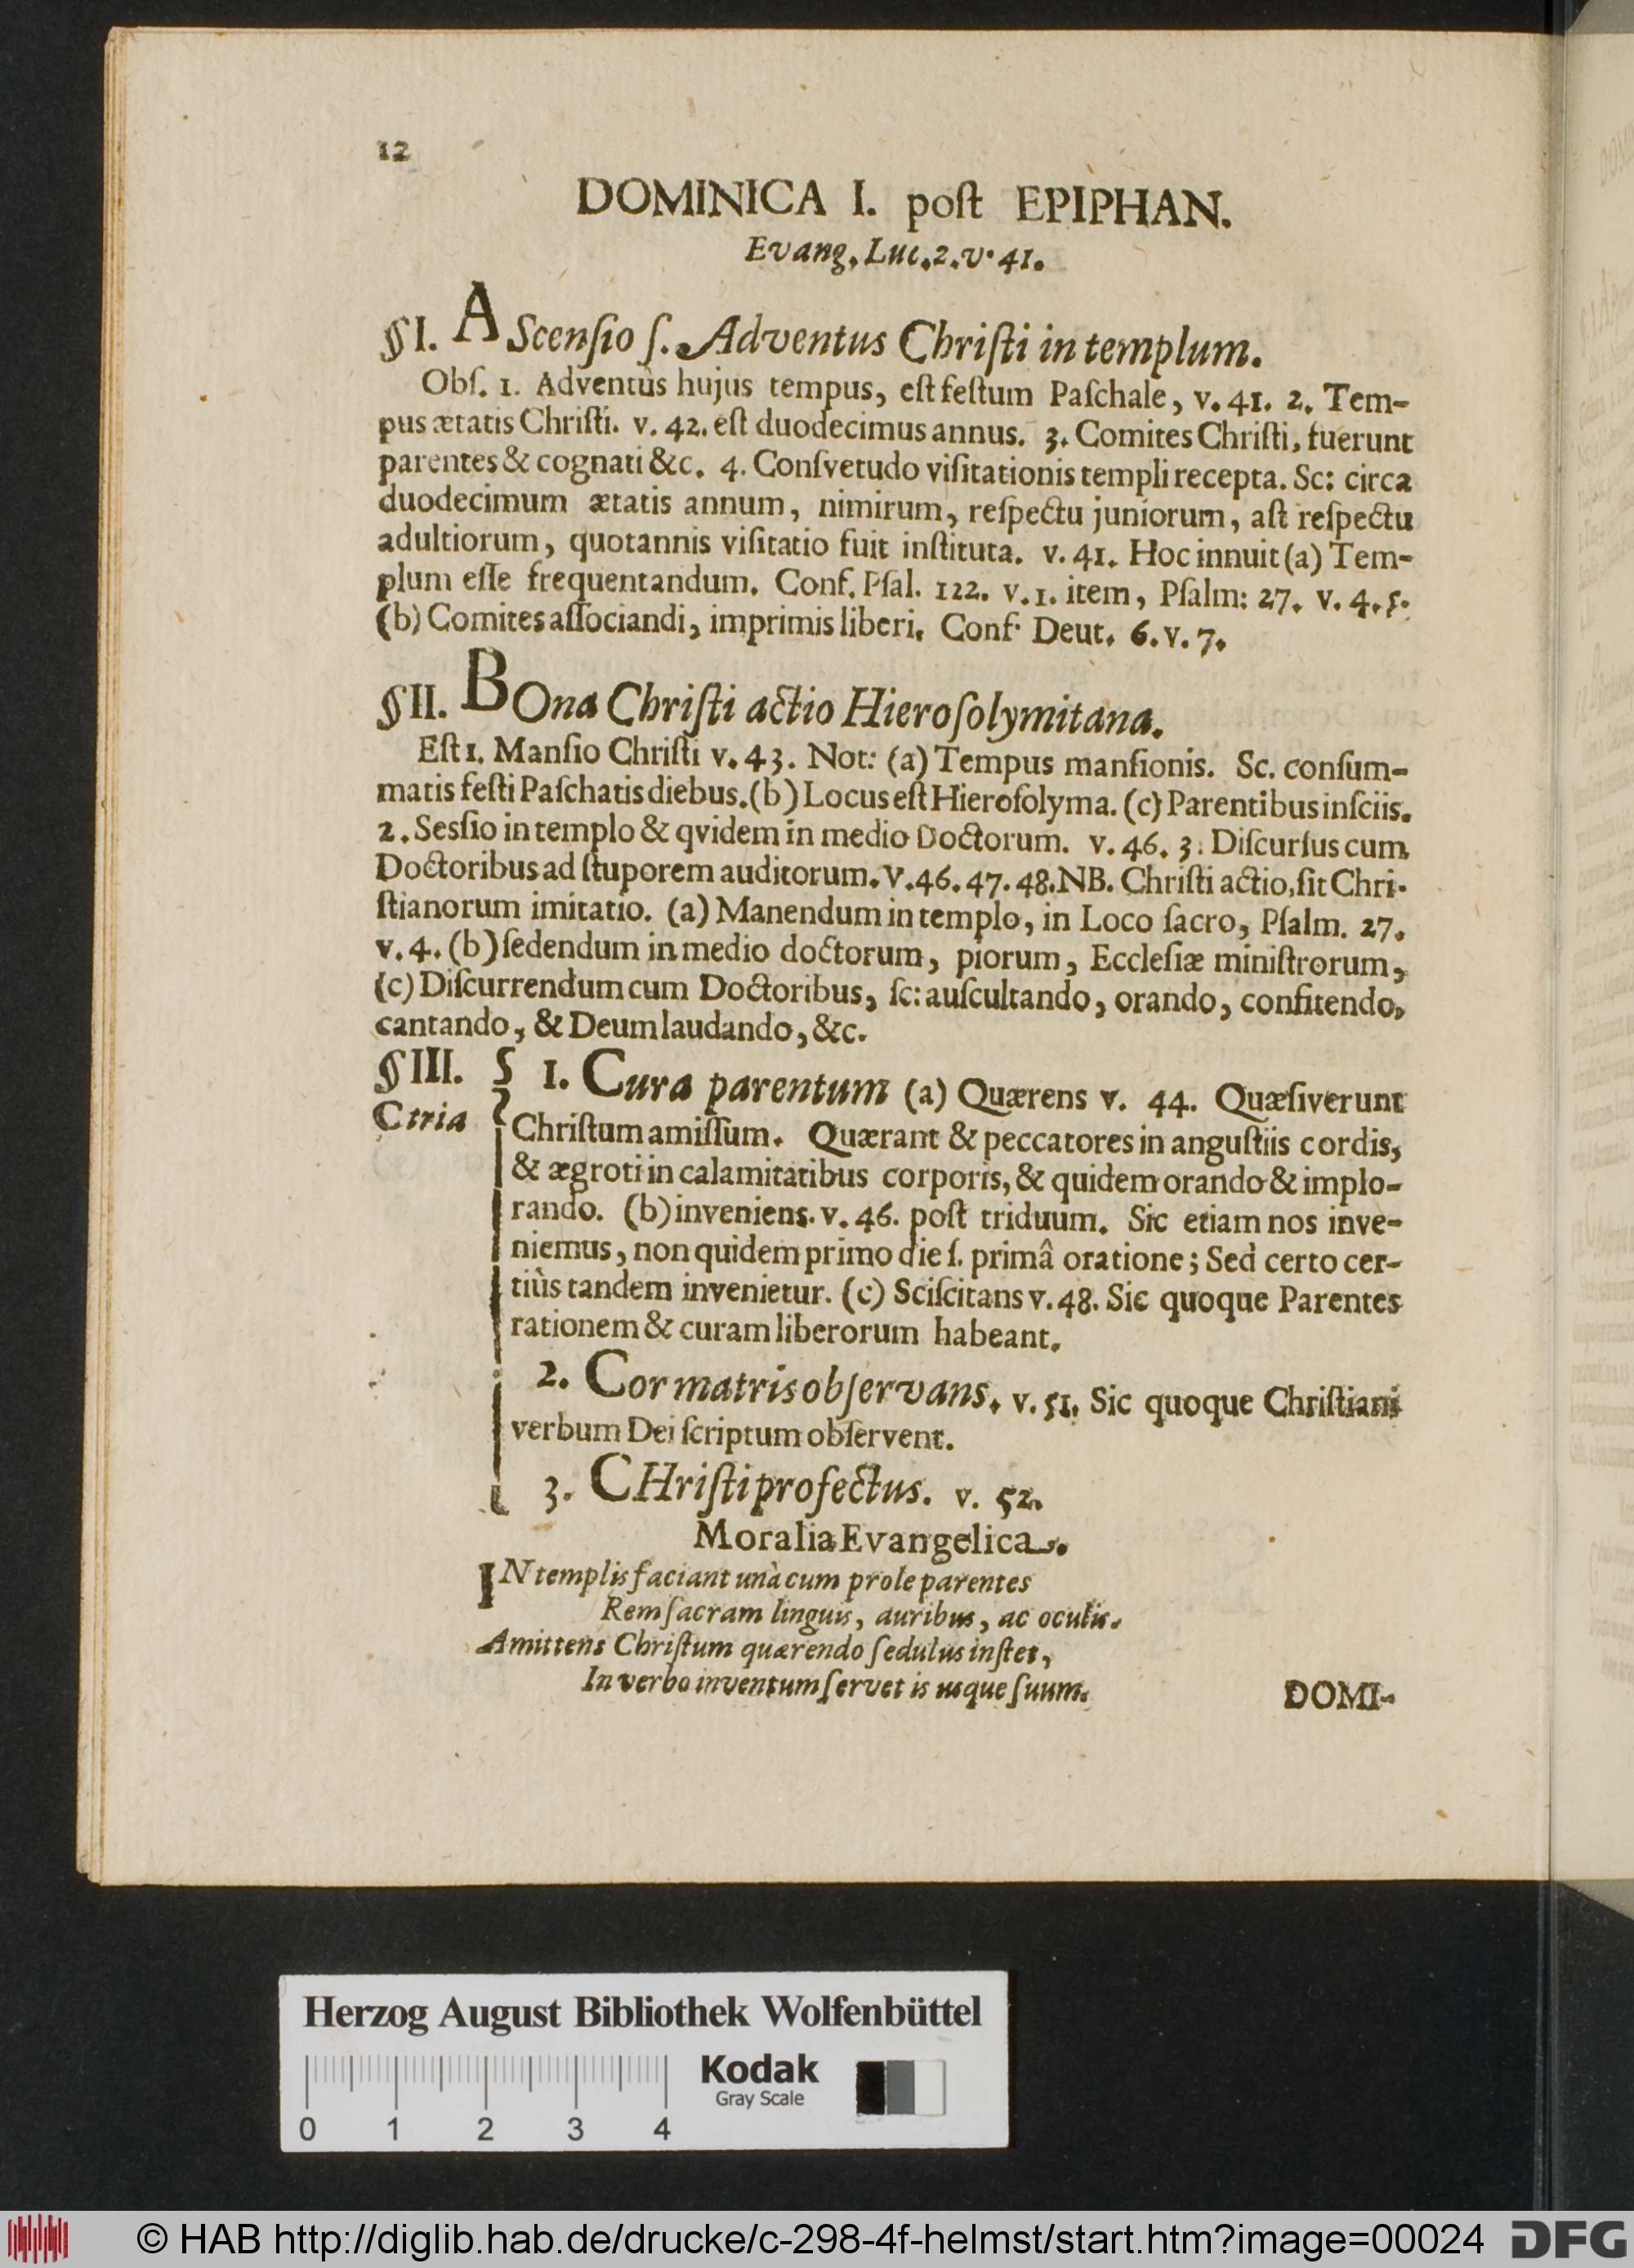 12
DOMINICA I. poſt EPIPHAN.
Evang. Luc. 2. v. 41.
§ I. AScenſio ſ. Adventus Chriſti in templum.
Obſ. 1. Adventûs hujus tempus, eſt feſtum Paſchale, v. 41. 2. Tem-
pus ætatis Chriſti. v. 42. eſt duodecimus annus. 3. Comites Chriſti, fuerunt
parentes & cognati &c. 4. Conſvetudo viſitationis templi recepta. Sc: circa
duodecimum ætatis annum, nimirum, reſpectu juniorum, aſt reſpectu
adultiorum, quotannis viſitatio fuit inſtituta. v. 41. Hoc innuit (a) Tem-
plum eſſe frequentandum. Conf. Pſal. 122. v. 1. item, Pſalm: 27. v. 4. 5.
(b) Comites aſſociandi, imprimis liberi. Conf. Deut. 6. v. 7.
§ II. BOna Chriſti actio Hieroſolymitana.
Eſt 1. Manſio Chriſti v. 43. Not: (a) Tempus manſionis. Sc. conſum-
matis feſti Paſchatis diebus. (b) Locus eſt Hieroſolyma. (c) Parentibus inſciis.
2. Sesſio in templo & qvidem in medio Doctorum. v. 46. 3. Diſcurſus cum
Doctoribus ad ſtuporem auditorum. V. 46. 47. 48. NB. Chriſti actio, ſit Chri-
ſtianorum imitatio. (a) Manendum in templo, in Loco ſacro, Pſalm. 27.
v. 4. (b) ſedendum in medio doctorum, piorum, Eccleſiæ miniſtrorum,
(c) Diſcurrendum cum Doctoribus, ſc: auſcultando, orando, confitendo,
cantando, & Deum laudando, &c.
§ III. 1. Cura parentum (a) Quærens v. 44. Quæſiverunt
Ctria Chriſtum amiſſum. Quærant & peccatores in anguſtiis cordis,
& ægroti in calamitatibus corporis, & quidem orando & implo-
rando. (b) inveniens. v. 46. poſt triduum. Sic etiam nos inve-
niemus, non quidem primo die ſ. primâ oratione; Sed certo cer-
tiùs tandem invenietur. (c) Sciſcitans v. 48. Sic quoque Parentes
rationem & curam liberorum habeant.
2. Cor matris obſervans. v. 51. Sic quoque Chriſtiani
verbum Dei ſcriptum obſervent.
3. CHriſti profectus. v. 52.
Moralia Evangelica.
IN templis faciant unà cum prole parentes
Rem ſacram linguis, auribus, ac oculis.
Amittens Chriſtum quærendo ſedulus inſtet,
In verbo inventum ſervet is usque ſuum.
DOMI-
Herzog August Bibliothek Wolfenbüttel
Kodak
Gray Scale
0 1 2 3 4
© HAB http://diglib.hab.de/drucke/c-298-4f-helmst/start.htm?image=00024
DFG